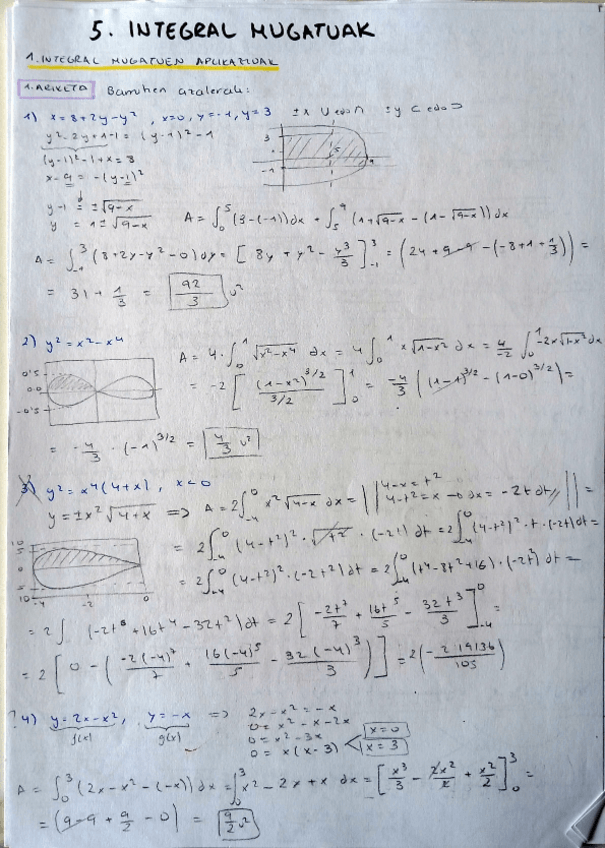 5. INTEGRAL MUGATUAK
1. INTEGRAL MUGATUEN APLIKAZIOAK
1. ARIKETA Barruhen azalerak:
1) x = 8+2y-y², x=0, y=-1, y=3 ±x ∪ edo ∩ ±y ⊂ edo ⊃
y²-2y+1-1 = (y-1)²-1
(y-1)²-1+x=8
x-9 = -(y-1)²
y-1 = ±√(9-x)
y = 1±√(9-x)
A = ∫₀⁵ (3-(-1))dx + ∫₅⁹ (1+√(9-x) - (1-√(9-x)))dx
A = ∫₋₁³ (8+2y-y²-0)dy = [8y + y² - y³/3]₋₁³ = (24+9-9-(-8+1+1/3)) =
= 31 + 1/3 = 92/3 u²
2) y² = x²-x⁴
A = 4·∫₀¹ √(x²-x⁴) dx = 4∫₀¹ x√(1-x²) dx = 4/-2 ∫₀¹ -2x√(1-x²) dx
0'5
0.0
-0'5
= -2 [(1-x²)^(3/2) / (3/2)]₀¹ = -4/3 ((1-1)^(3/2) - (1-0)^(3/2)) =
= -4/3 · (-1)^(3/2) = 4/3 u²
3) y² = x⁴(4+x), x<0
y = ±x²√(4+x) => A = 2∫₋₄⁰ x²√(4-x) dx = || 4-x=t² 4-t²=x → dx=-2t dt || =
= 2∫₋₄⁰ (4-t²)²·√t²·(-2t) dt = 2∫₋₄⁰ (4-t²)²·t·(-2t)dt =
= 2∫₋₄⁰ (4-t²)²·(-2t²)dt = 2∫₋₄⁰ (t⁴-8t²+16)·(-2t²) dt =
= 2∫ (-2t⁶+16t⁴-32t²)dt = 2[-2t⁷/7 + 16t⁵/5 - 32t³/3]₋₄⁰ =
= 2[0 - (-2(-4)⁷/7 + 16(-4)⁵/5 - 32(-4)³/3)] = 2(-219136/105)
?4) y=2x-x², y=-x =>
f(x) g(x)
2x-x²=-x
0=x²-x-2x
0=x²-3x
0=x(x-3) < x=0 x=3
A = ∫₀³ (2x-x²-(-x))dx = ∫₀³ x²-2x+x dx = [x³/3 - 2x²/2 + x²/2]₀³ =
= (9-9+9/2-0) = 9/2 u²